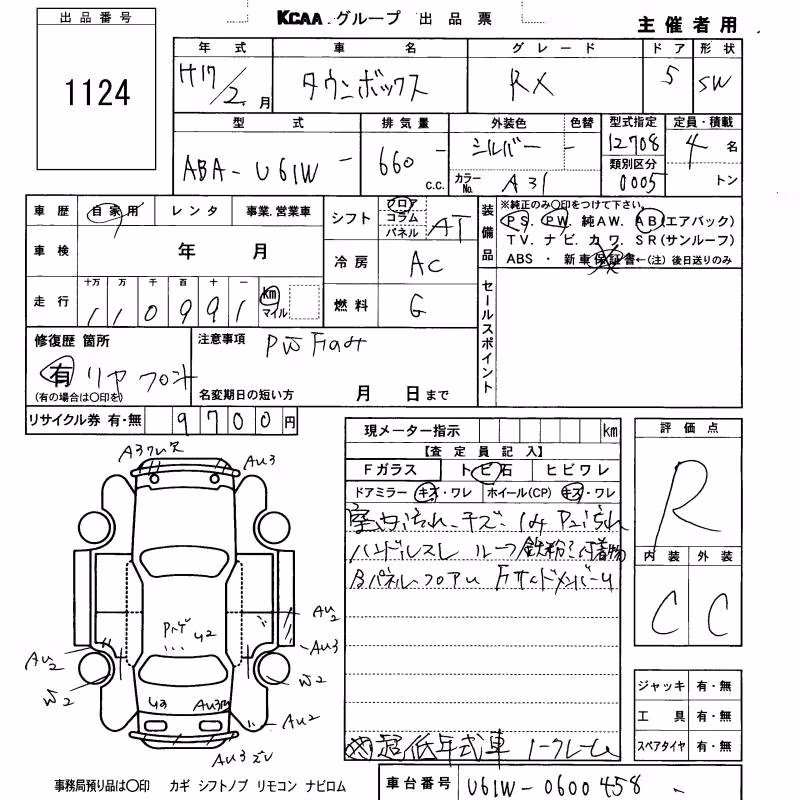 KCAA グループ 出品票
主催者用
出品番号
1124
年式 車名 グレード ドア 形状
H17/2月 タウンボックス RX 5 SW
型式 排気量 外装色 色替 型式指定 定員・積載
ABA-U61W - 660 - c.c. シルバー - 12708 4 名
類別区分
カラーNo. A31 0005 トン
車歴 自家用 レンタ 事業.営業車
シフト フロア コラム パネル AT
装備品 ※純正のみ〇印をつけて下さい。
PS. PW. 純AW. AB(エアバック)
TV. ナビ. カワ. SR(サンルーフ)
ABS ・ 新車保証書←(注)後日送りのみ
車検 年 月
冷房 AC
走行 十万 万 千 百 十 一
110991 km マイル
燃料 G
セールスポイント
修復歴 箇所
有 リヤ フロント
(有の場合は〇印を)
注意事項
名変期日の短い方 月 日まで
リサイクル券 有・無 9700 円
現メーター指示 km
【査定員記入】
Fガラス トビ石 ヒビワレ
ドアミラー キズ・ワレ ホイール(CP) キズ・ワレ
室内汚れ、キズ
ハンドルスレ ルーフ鉄粉 付着物
Bパネル、フロア
超低年式車 ノークレーム
評価点
R
内装 外装
C C
ジャッキ 有・無
工具 有・無
スペアタイヤ 有・無
AU3
AU2
AU3
AU2
W2
W2
U2
U3
AU2
AU3
事務局預り品は〇印 カギ シフトノブ リモコン ナビロム
車台番号 U61W-0600458 -